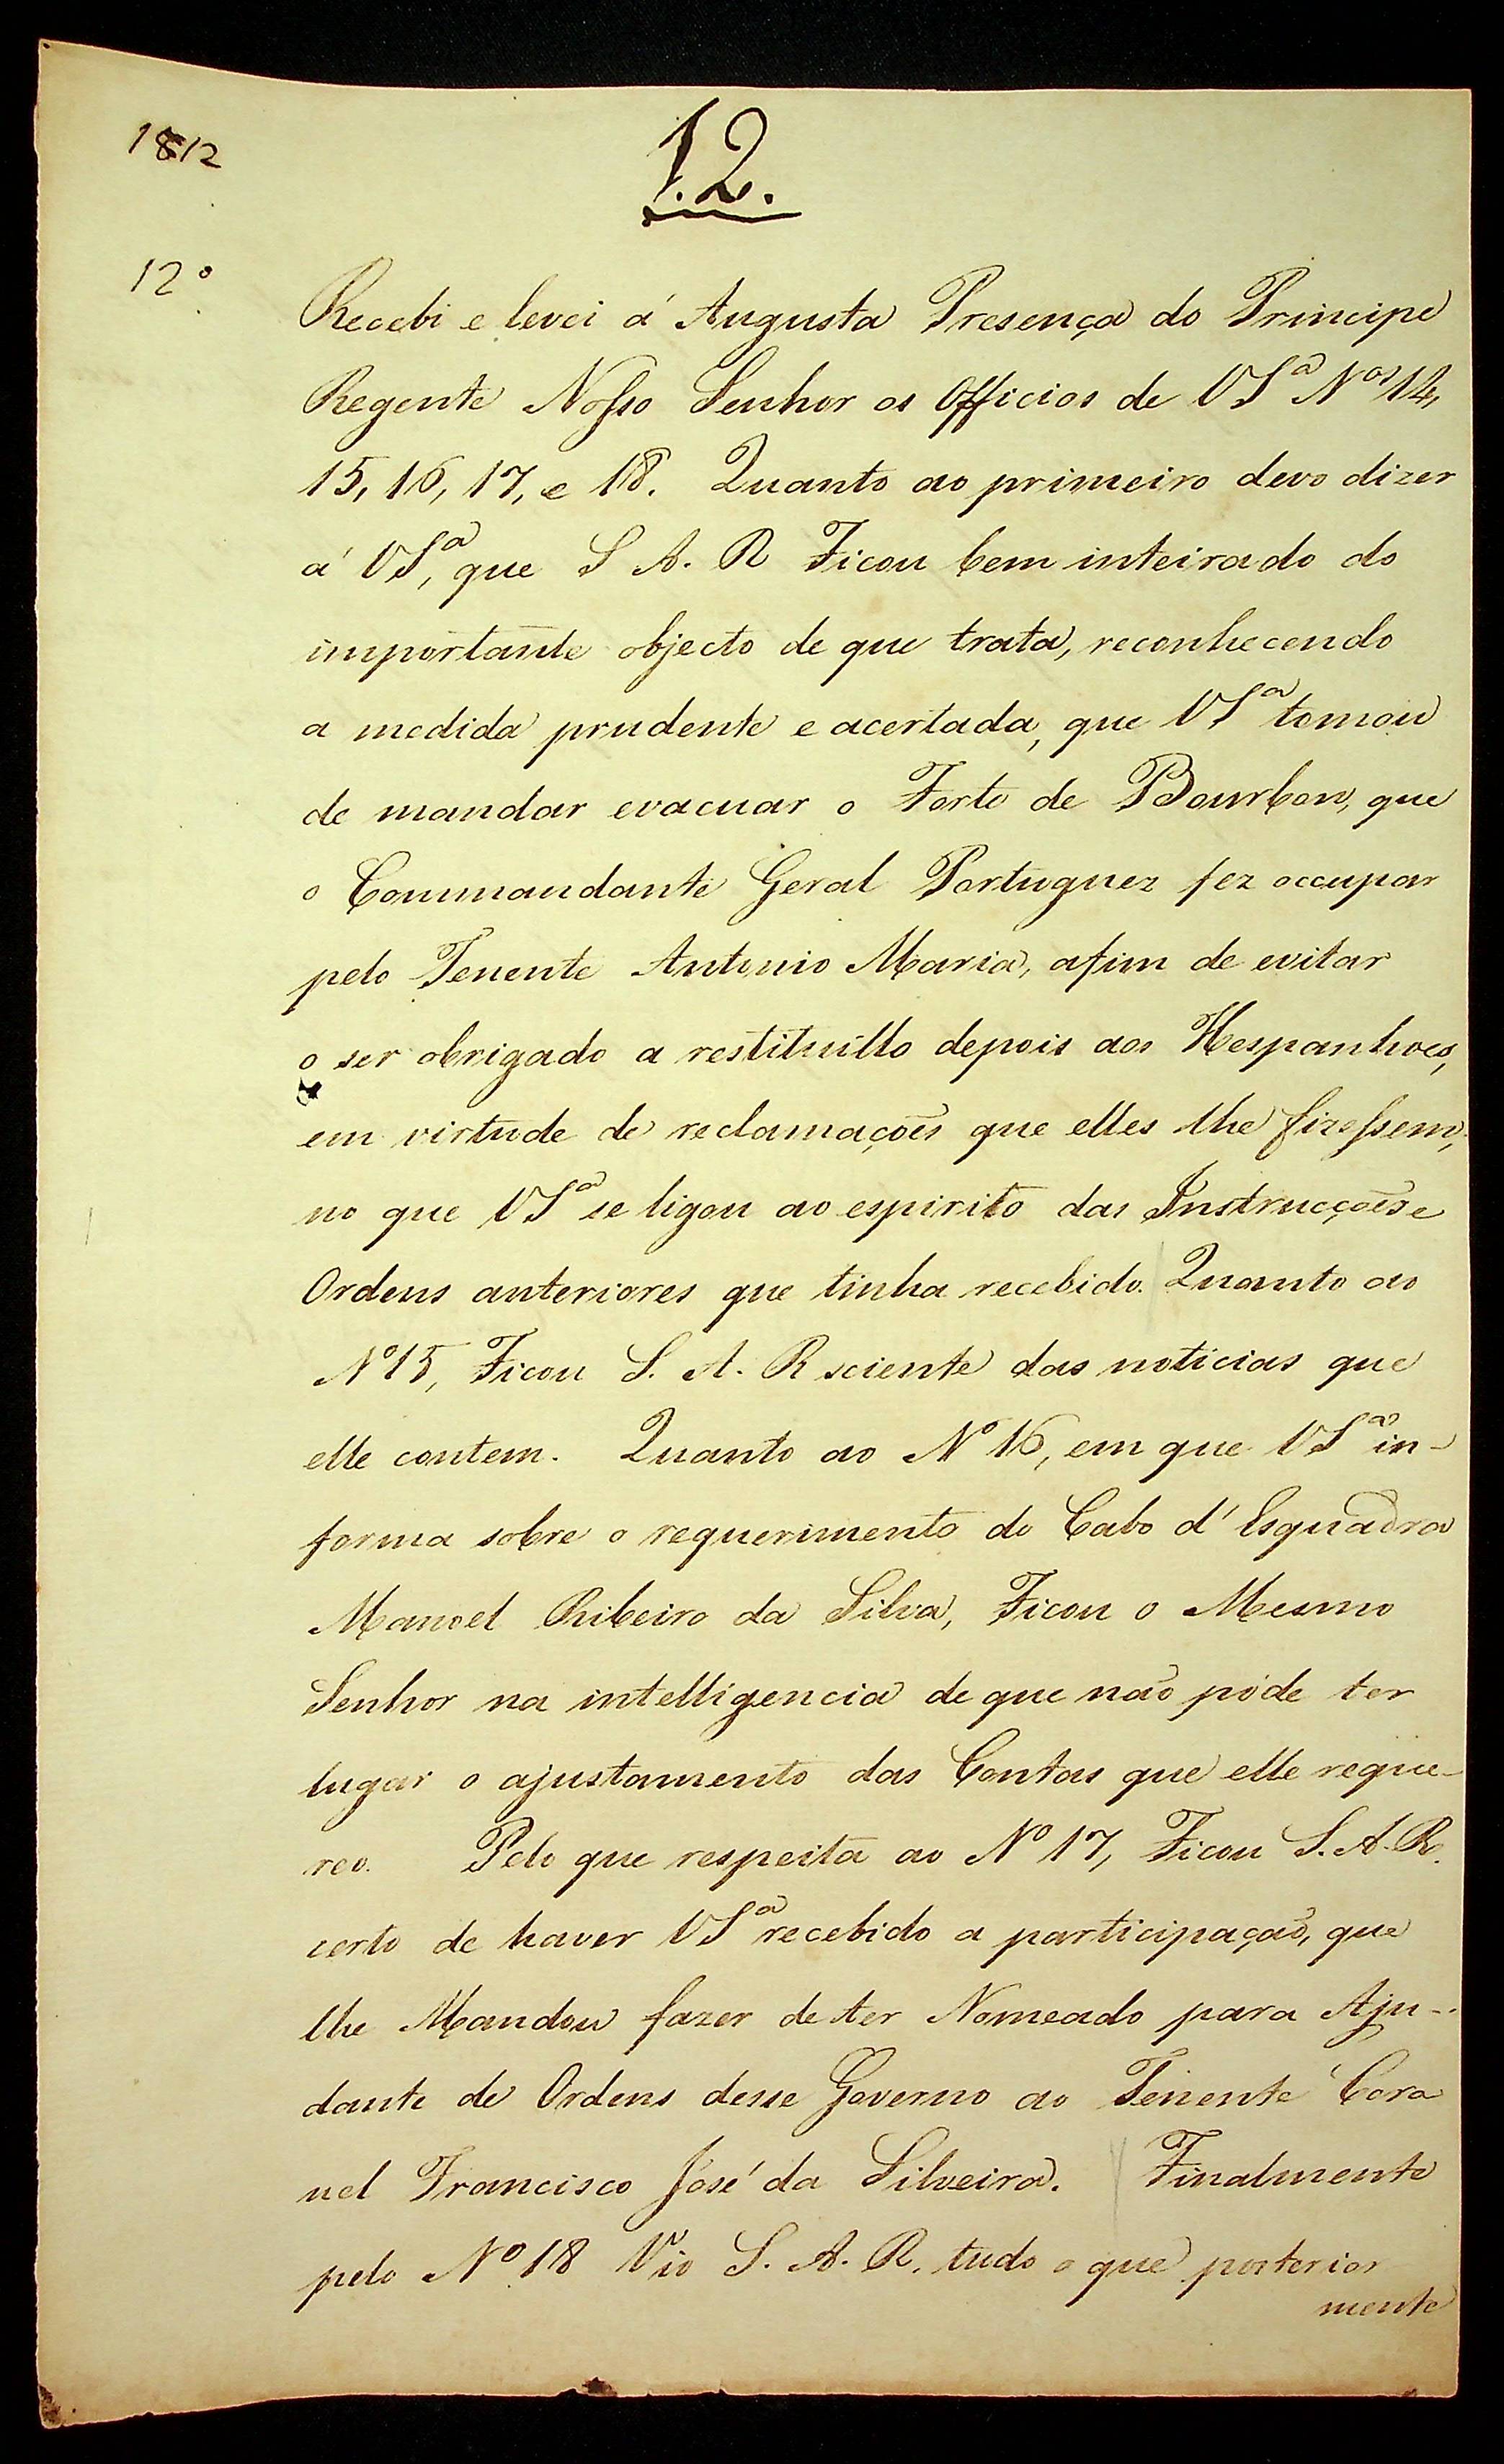 1812
12.
12º
Recebi e levei á Augusta Presença do Principe
Regente Nosso Senhor os Officios de VSª Nos 14,
15, 16, 17, e 18. Quanto ao primeiro devo dizer
á VSª, que S A. R Ficou bem inteirado do
importante objecto de que trata, reconhecendo
a medida prudente e acertada, que VSª tomou
de mandar evacuar o Forte de Bourbon, que
o Commandante Geral Portuguez fez occupar
pelo Tenente Antonio Maria, afim de evitar
o ser obrigado a restituillo depois aos Hespanhoes,
em virtude de reclamações que elles lhe fizessem,
no que VSª se ligou ao espirito das Instrucções e
Ordens anteriores que tinha recebido. Quanto ao
Nº 15, Ficou S. A. R sciente das noticias que
elle contem. Quanto ao Nº 16, em que VSª in-
forma sobre o requerimento do Cabo d' Esquadra
Manoel Ribeiro da Silva, Ficou o Mesmo
Senhor na intelligencia de que não póde ter
lugar o ajustamento das Contas que elle reque-
reo. Pelo que respeita ao Nº 17, Ficou S. A. R.
certo de haver VSª recebido a participação, que
lhe Mandou fazer de ter Nomeado para Aju-
dante de Ordens desse Governo ao Tenente Coro
nel Francisco José da Silveira. Finalmente
pelo Nº 18 Vio S. A. R. tudo o que posterior
mente